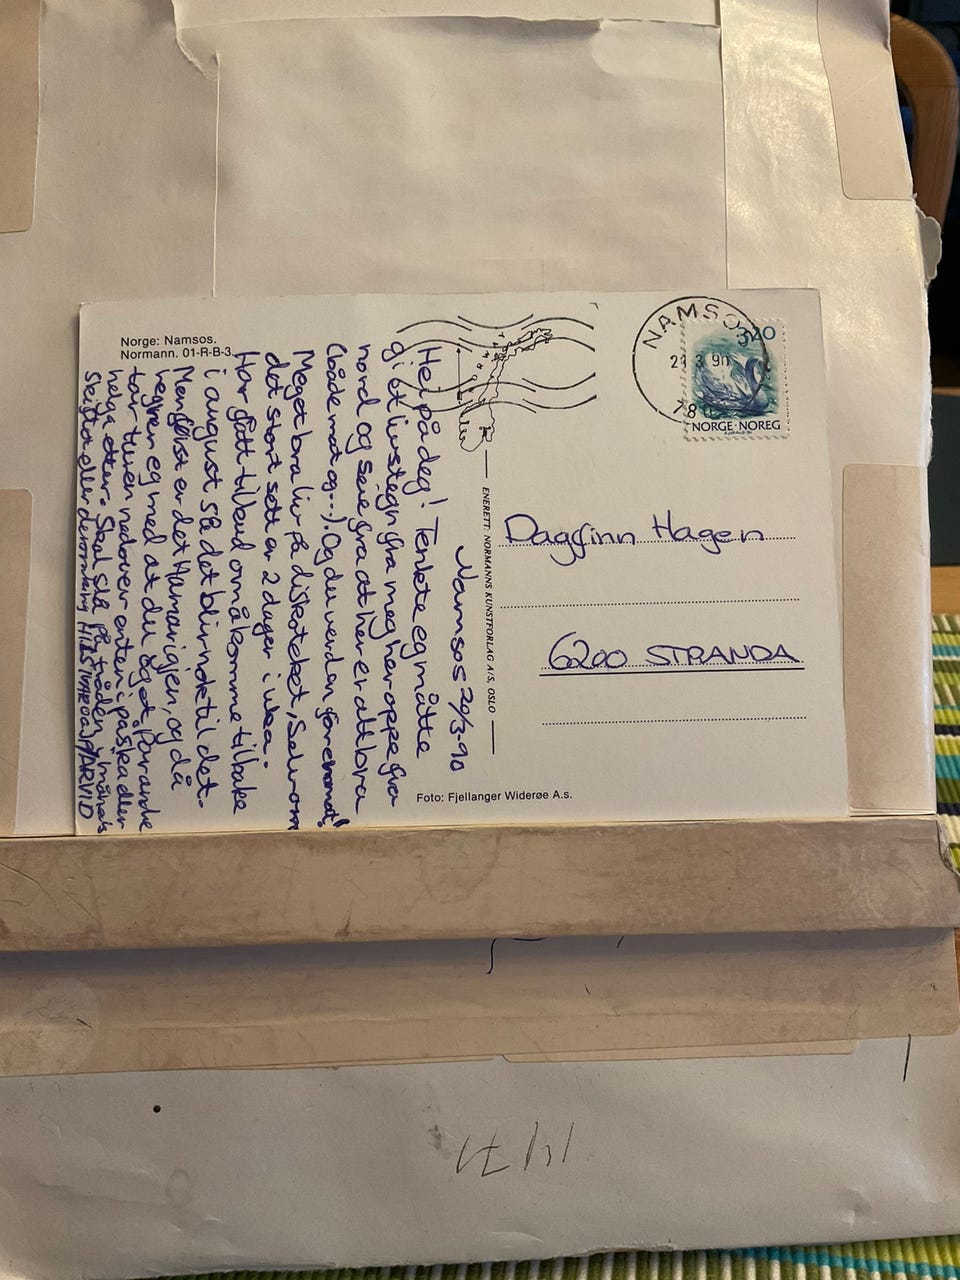 Norge: Namsos.
Normann. 01-R-B-3.
Namsos 20/3-90
Hei på deg! Tenkte eg måtte
gi et livstegn fra meg her oppe fra
nord og seie fra at her er alt bra
(både mat og --). Og du verden for
Meget bra liv på diskoteket, Selv om
det stort sett er 2 dager i uka.
Har fått tilbud om å komme tilbake
i august så det blir nok til det.
Men først er det Hamar igjen, og då
regner eg med at du og et par andre
tar turen nedover enten i påska eller
helga etter. Skal slå på tråden i månads
skiftet eller deromkring ARVID
NAMSOS
23 3 90
NORWAY
320
NORGE·NOREG
ENERETT: NORMANNS KUNSTFORLAG A/S, OSLO
Dagfinn Hagen
6200 STRANDA
Foto: Fjellanger Widerøe A.s.